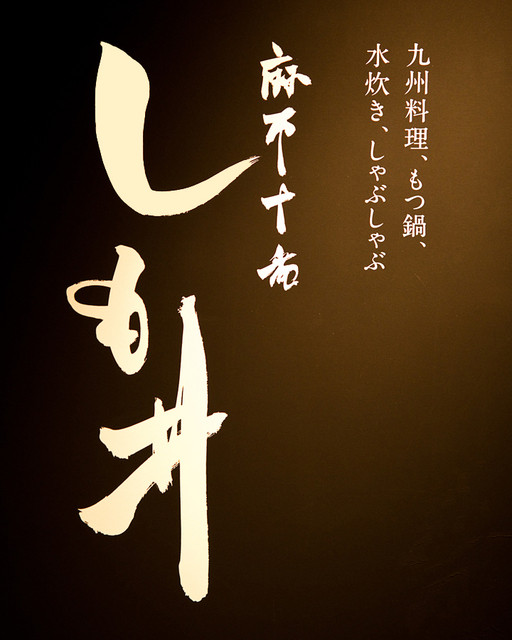 九州料理、もつ鍋、
水炊き、しゃぶしゃぶ
麻布十番
しも井